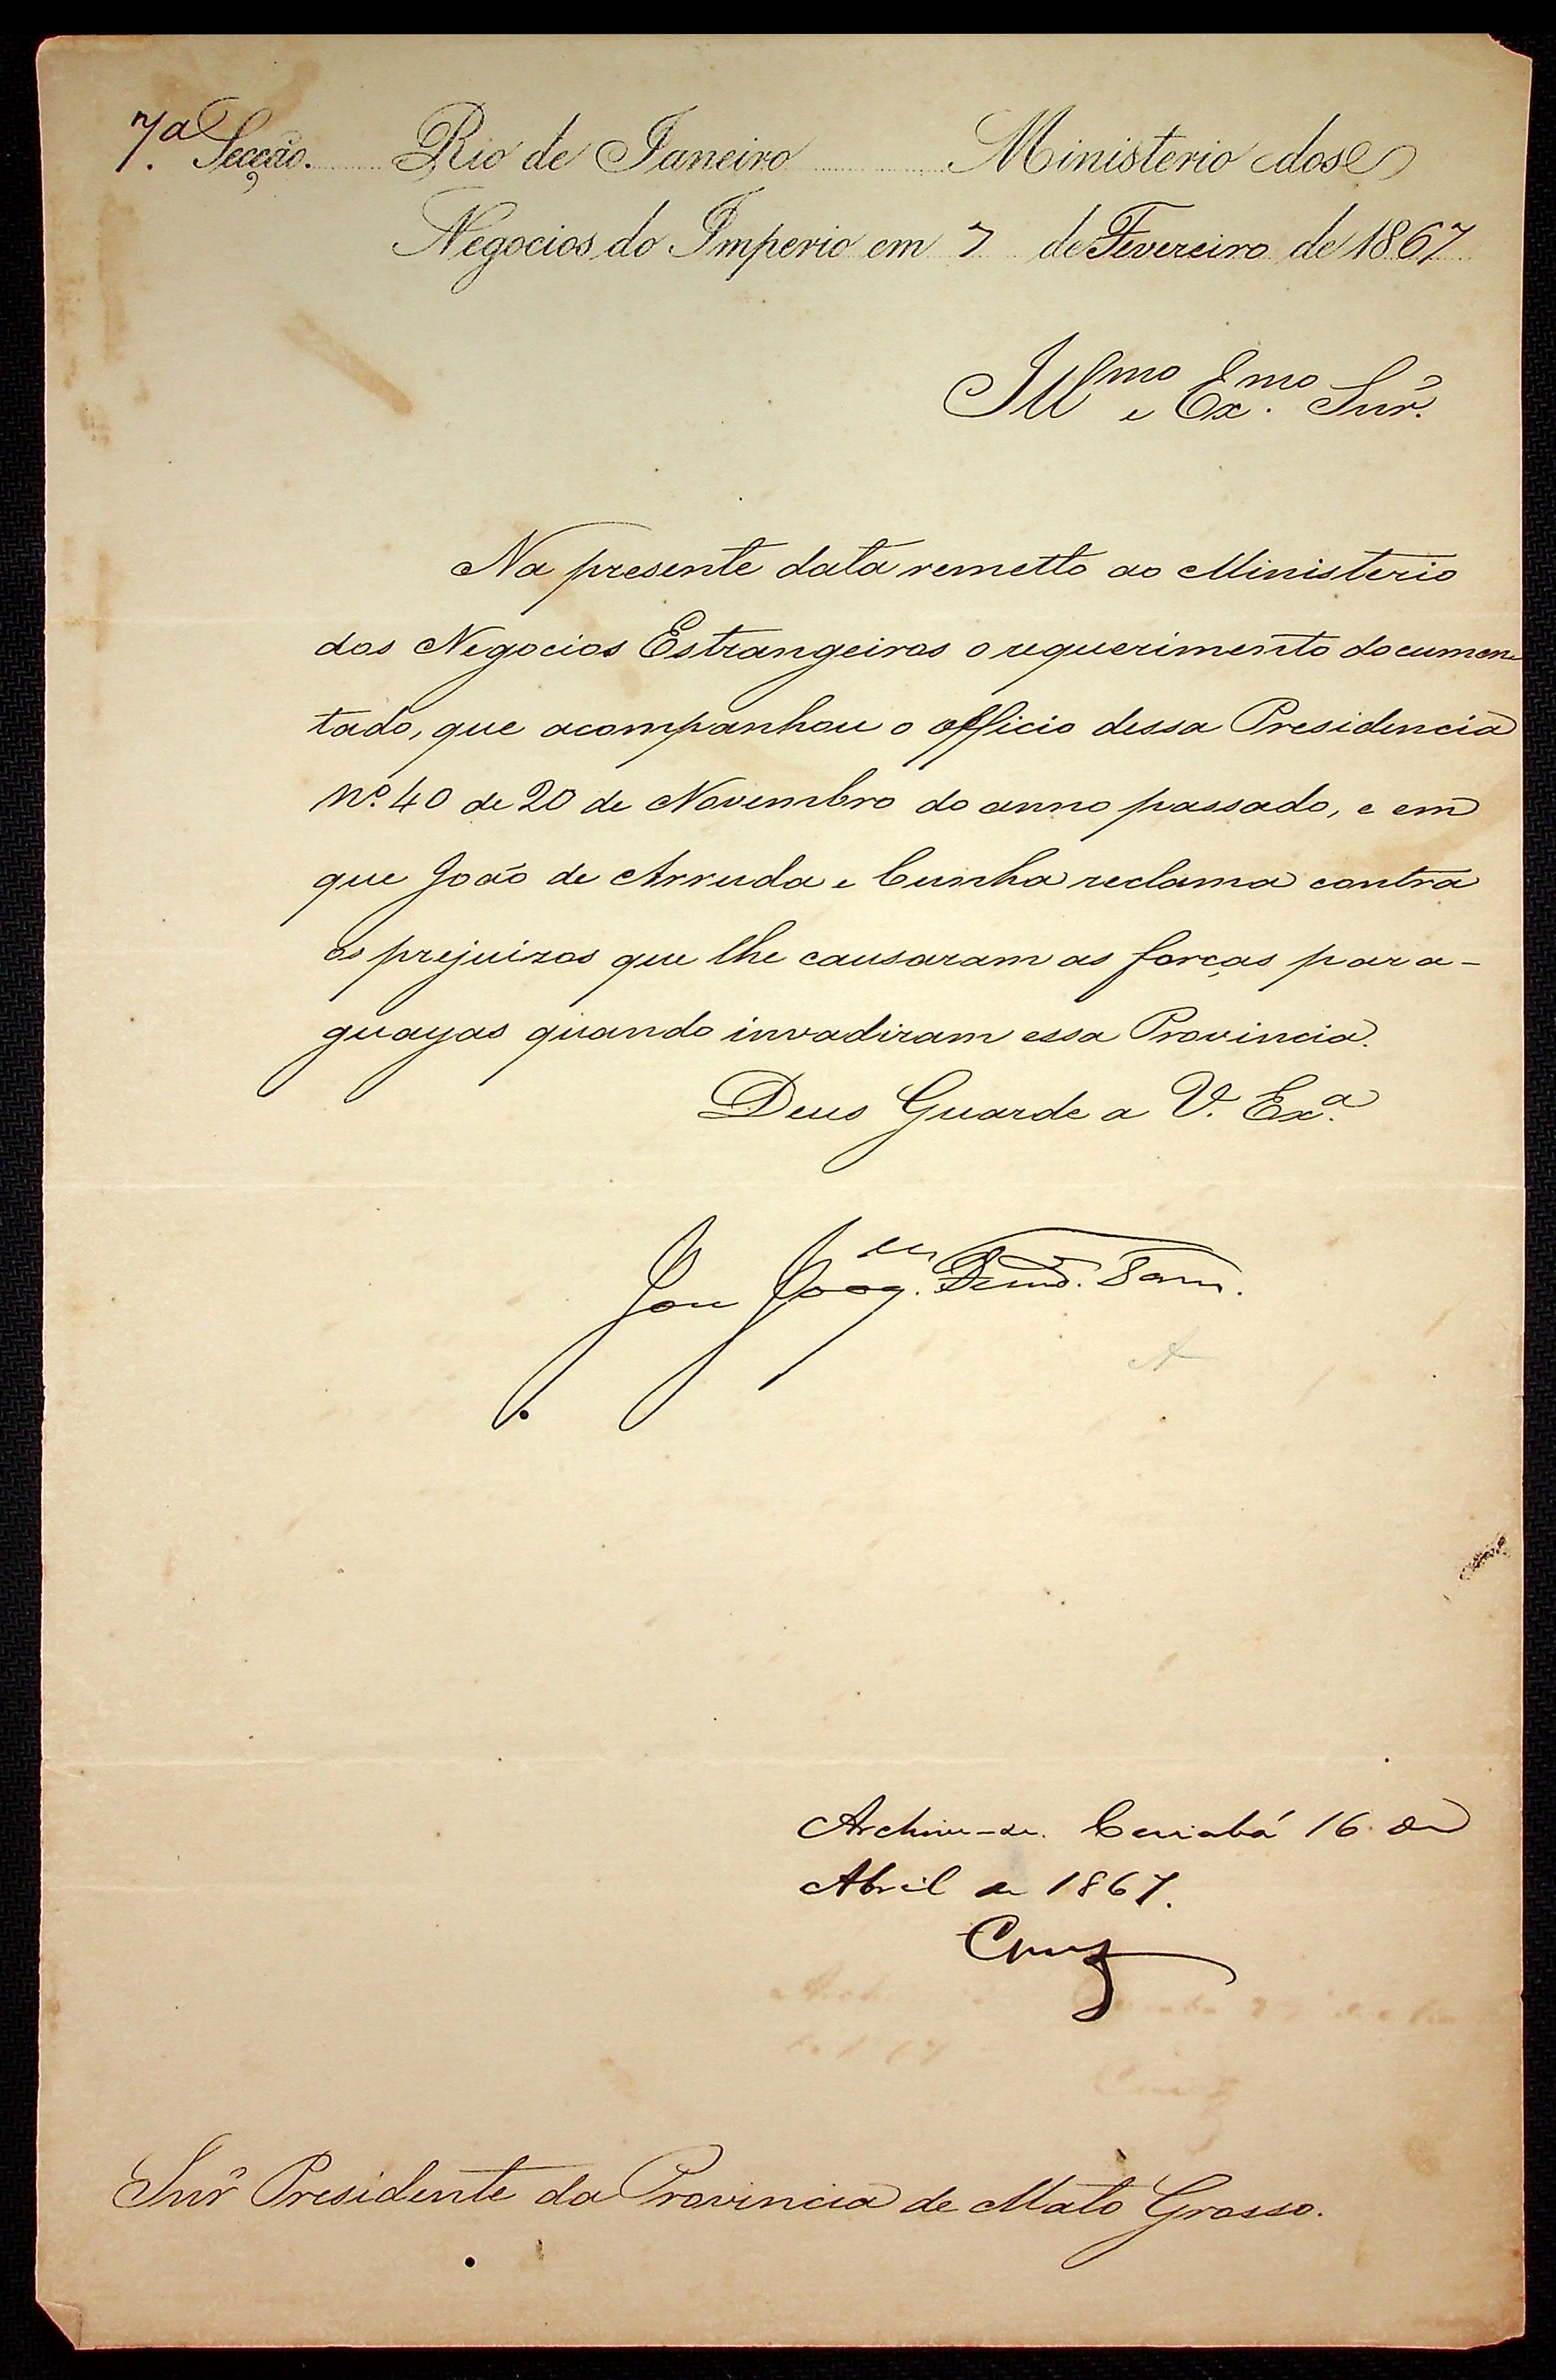 7.ª Secção. Rio de Janeiro Ministerio dos
Negocios do Imperio em 7 de Fevereiro de 1867
Ill.mo e Ex.mo Snr.
Na presente data remetto ao Ministerio
dos Negocios Estrangeiros o requerimento documen-
tado, que acompanhou o officio dessa Presidencia
Nº 40 de 20 de Novembro do anno passado, e em
que João de Arruda e Cunha reclama contra
os prejuizos que lhe causaram as forças para-
guayas quando invadiram essa Provincia.
Deus Guarde a V. Ex.ª
José Joaq.m Fernd. Torr.
Archive-se. Cuiabá 16 de
Abril de 1867.
Cruz
Snr Presidente da Provincia de Mato Grosso.